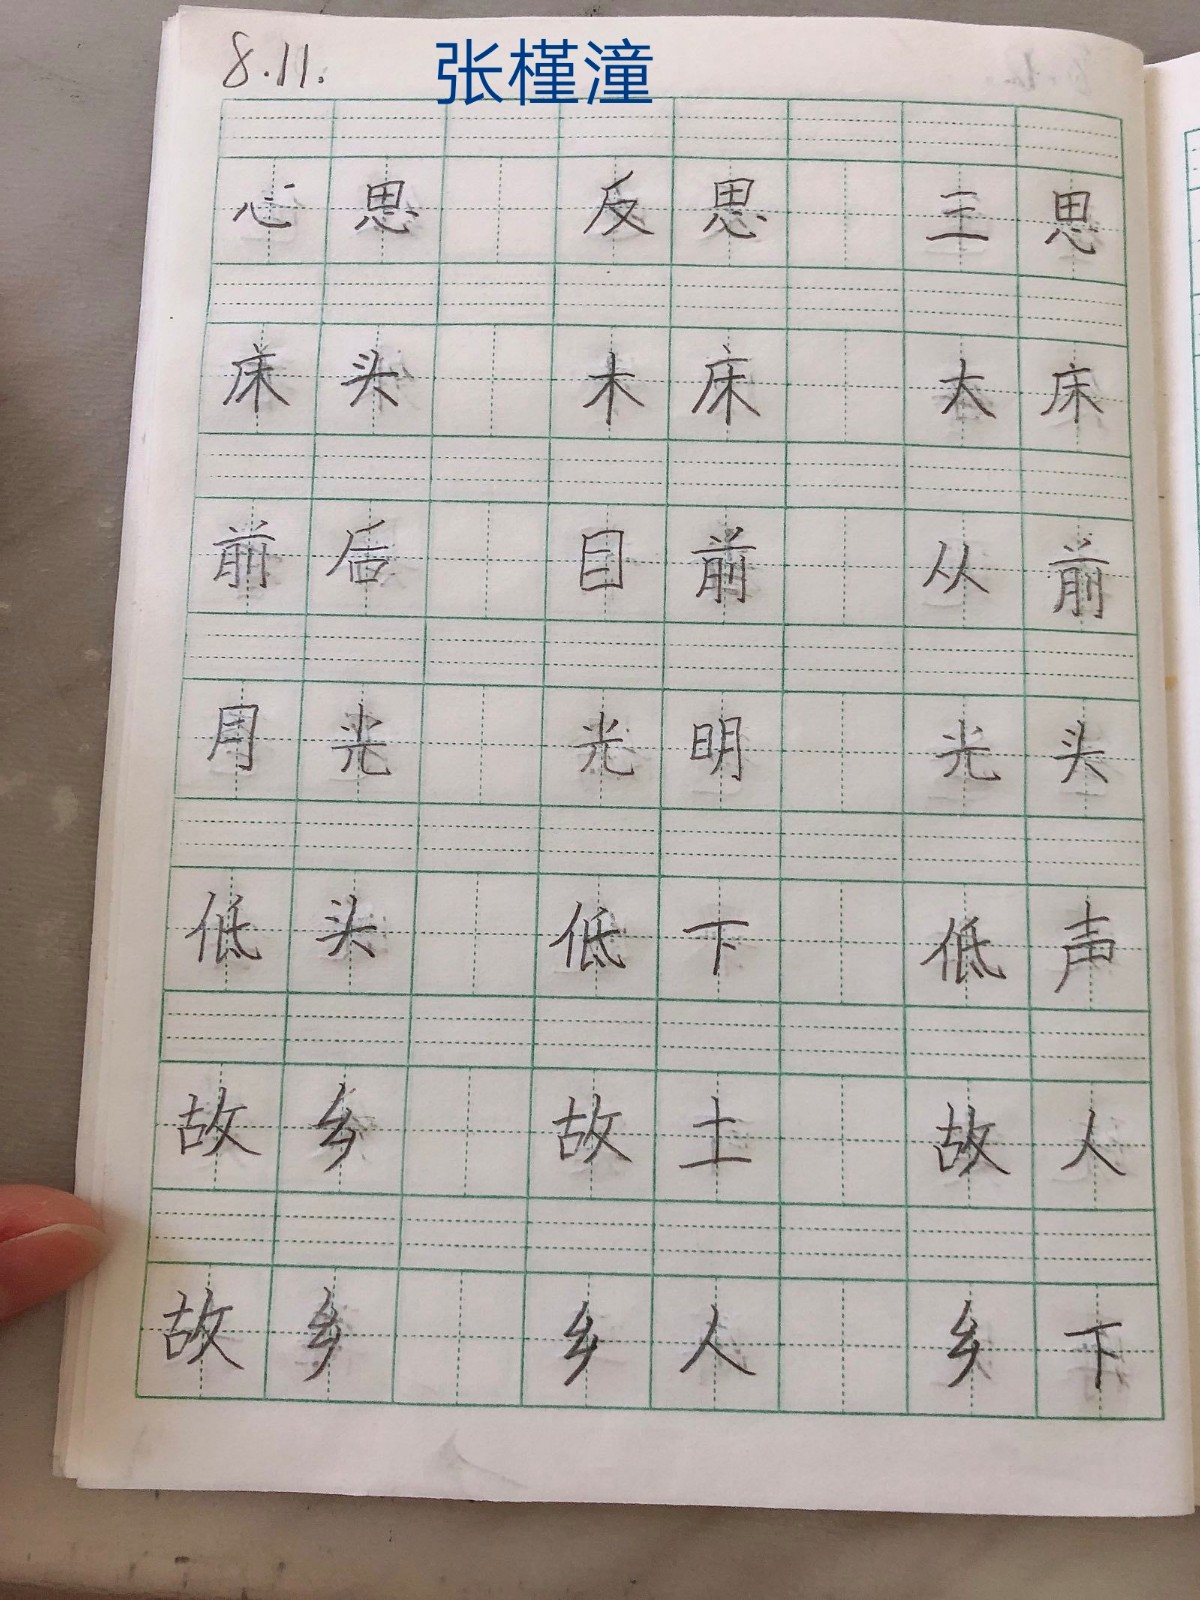 8.11. 张槿潼
心思 反思 三思
床头 木床 大床
前后 目前 从前
月光 光明 光头
低头 低下 低声
故乡 故土 故人
故乡 乡人 乡下